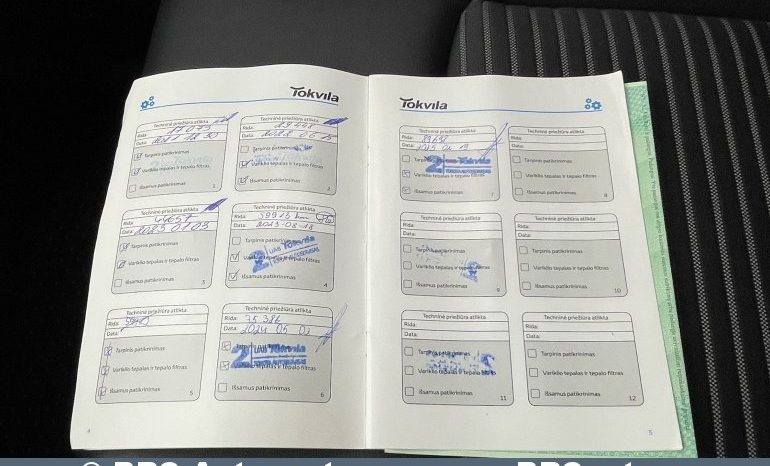 Tokvila
Techninė priežiūra atlikta
Rida:
Data:
Tarpinis patikrinimas
Variklio tepalas ir tepalo filtras
Išsamus patikrinimas
1
Techninė priežiūra atlikta
Rida:
Data:
Tarpinis patikrinimas
Variklio tepalas ir tepalo filtras
Išsamus patikrinimas
2
Techninė priežiūra atlikta
Rida:
Data: 2023 01 03
Tarpinis patikrinimas
Variklio tepalas ir tepalo filtras
Išsamus patikrinimas
3
Techninė priežiūra atlikta
Rida: 59913 km
Data: 2023-08-18
Tarpinis patikrinimas
Variklio tepalas ir tepalo filtras
Išsamus patikrinimas
UAB Tokvila
4
Techninė priežiūra atlikta
Rida:
Data:
Tarpinis patikrinimas
Variklio tepalas ir tepalo filtras
Išsamus patikrinimas
5
Techninė priežiūra atlikta
Rida: 75386
Data: 2024 05 02
Variklio tepalas ir tepalo filtras
Išsamus patikrinimas
2 UAB Tokvila
6
4
Tokvila
Techninė priežiūra atlikta
Rida:
Data:
Variklio tepalas ir tepalo filtras
Išsamus patikrinimas
Tokvila
7
Techninė priežiūra atlikta
Rida:
Data:
Tarpinis patikrinimas
Variklio tepalas ir tepalo filtras
Išsamus patikrinimas
8
Techninė priežiūra atlikta
Rida:
Data:
Tarpinis patikrinimas
Variklio tepalas ir tepalo filtras
Išsamus patikrinimas
9
Techninė priežiūra atlikta
Rida:
Data:
Tarpinis patikrinimas
Variklio tepalas ir tepalo filtras
Išsamus patikrinimas
10
Techninė priežiūra atlikta
Rida:
Data:
Tarpinis patikrinimas
Variklio tepalas ir tepalo filtras
Išsamus patikrinimas
11
Techninė priežiūra atlikta
Rida:
Data:
Tarpinis patikrinimas
Variklio tepalas ir tepalo filtras
Išsamus patikrinimas
12
5